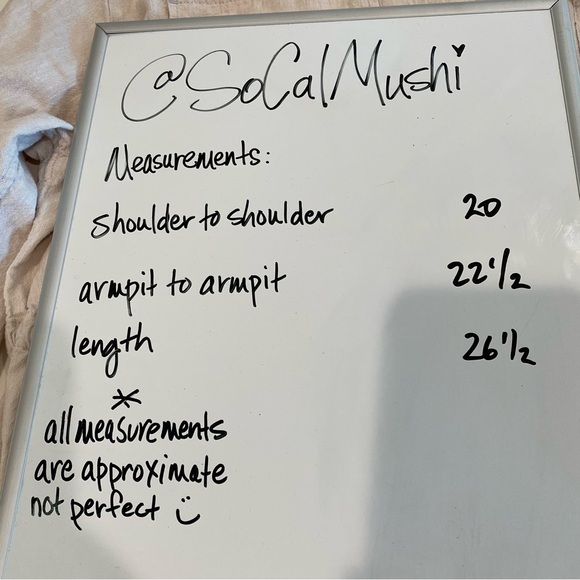 @SoCalMushi
Measurements:
shoulder to shoulder 20
armpit to armpit 22 1/2
length 26 1/2
*
all measurements
are approximate
not perfect :)